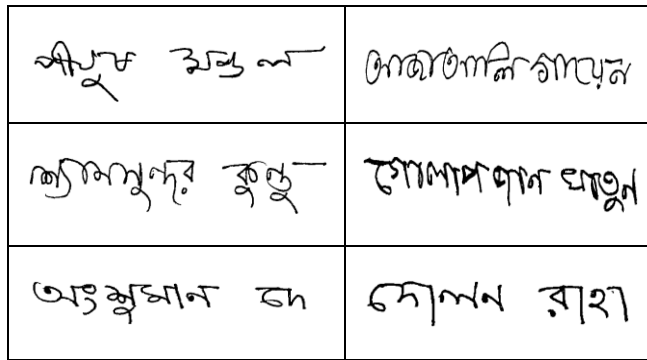 পীযুষ মন্ডল
আজাতালি গায়েন
শ্যামসুন্দর কুন্ডু
গোলাপজান খাতুন
অংশুমান দে
দোলন রাহা